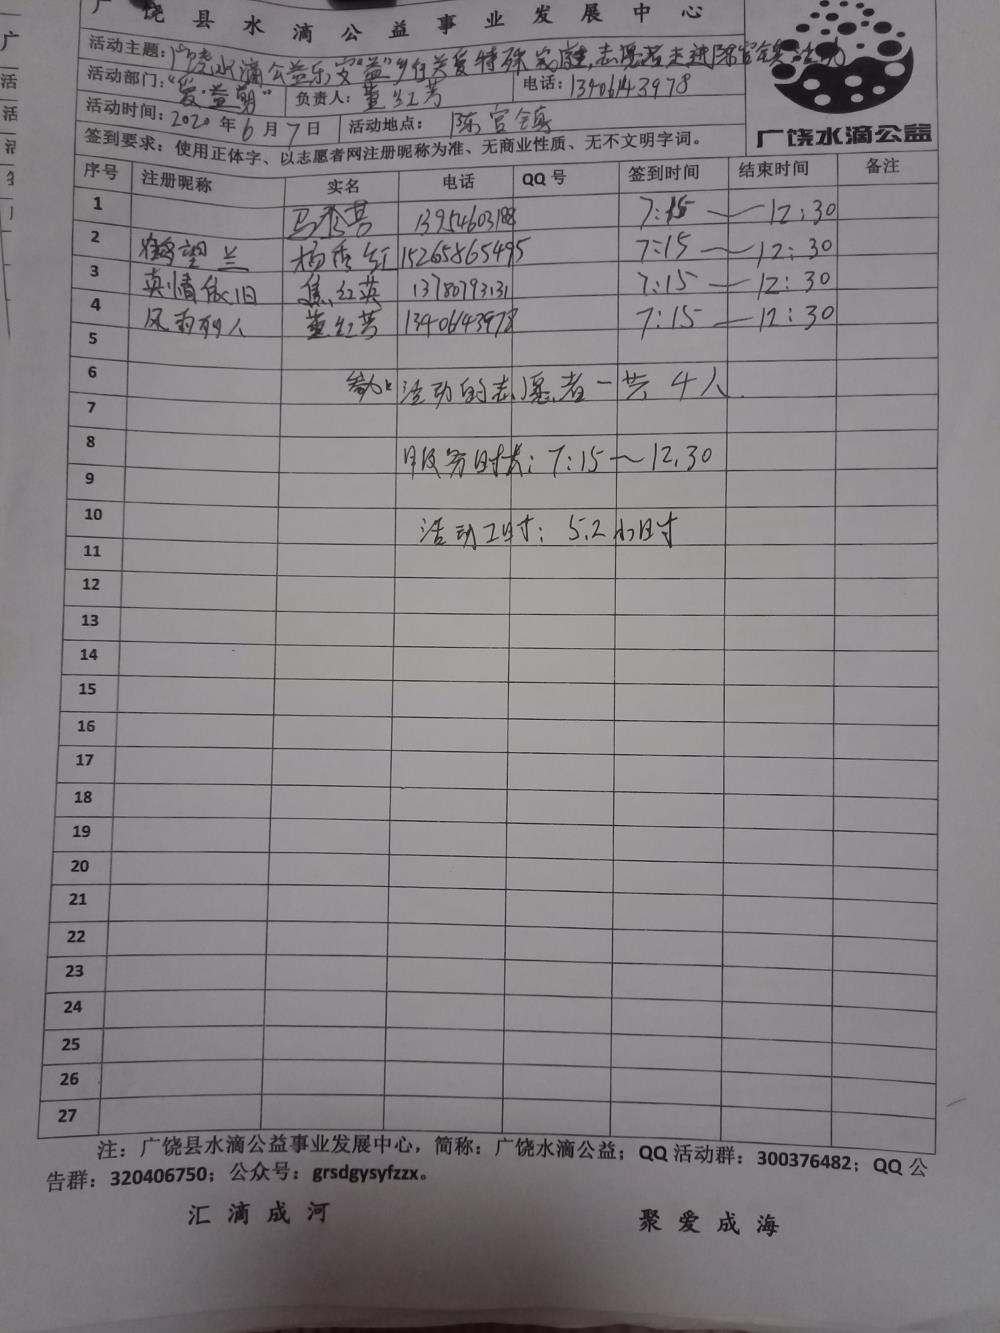 广饶县水滴公益事业发展中心
活动主题：广饶水滴公益乐安"益"乡行关爱特殊家庭志愿者走进陈官镇活动
活动部门："爱·益朝" 负责人：董红芳 电话：13406143978
活动时间：2020年6月7日 活动地点：陈官镇
签到要求：使用正体字、以志愿者网注册昵称为准、无商业性质、无不文明字词。
广饶水滴公益
序号 注册昵称 实名 电话 QQ号 签到时间 结束时间 备注
1 马秀芸 7:15 — 12:30
2 鹤望兰 杨秀红 15265865495 7:15 ~ 12:30
3 真情依旧 焦红英 13780793131 7:15 — 12:30
4 风雨丽人 董红芳 13406143978 7:15 — 12:30
5
6 参加活动的志愿者一共4人.
7
8 服务时长：7:15~12.30
9
10 活动工时：5.2小时
11
12
13
14
15
16
17
18
19
20
21
22
23
24
25
26
27
注：广饶县水滴公益事业发展中心，简称：广饶水滴公益；QQ活动群：300376482；QQ公
告群：320406750；公众号：grsdgysyfzzx。
汇滴成河 聚爱成海